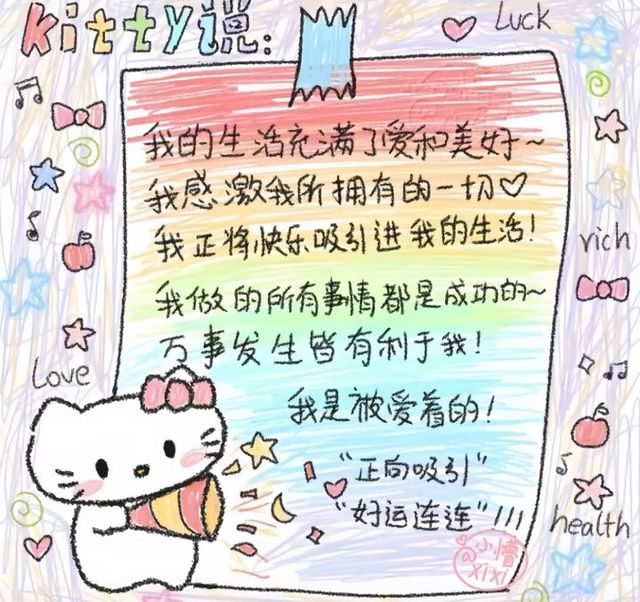 kitty说:
Luck
我的生活充满了爱和美好~
我感激我所拥有的一切♡
我正将快乐吸引进我的生活!
rich
我做的所有事情都是成功的~
万事发生皆有利于我!
Love
我是被爱着的!
"正向吸引"
"好运连连"!!!
health
@小惜
xixi